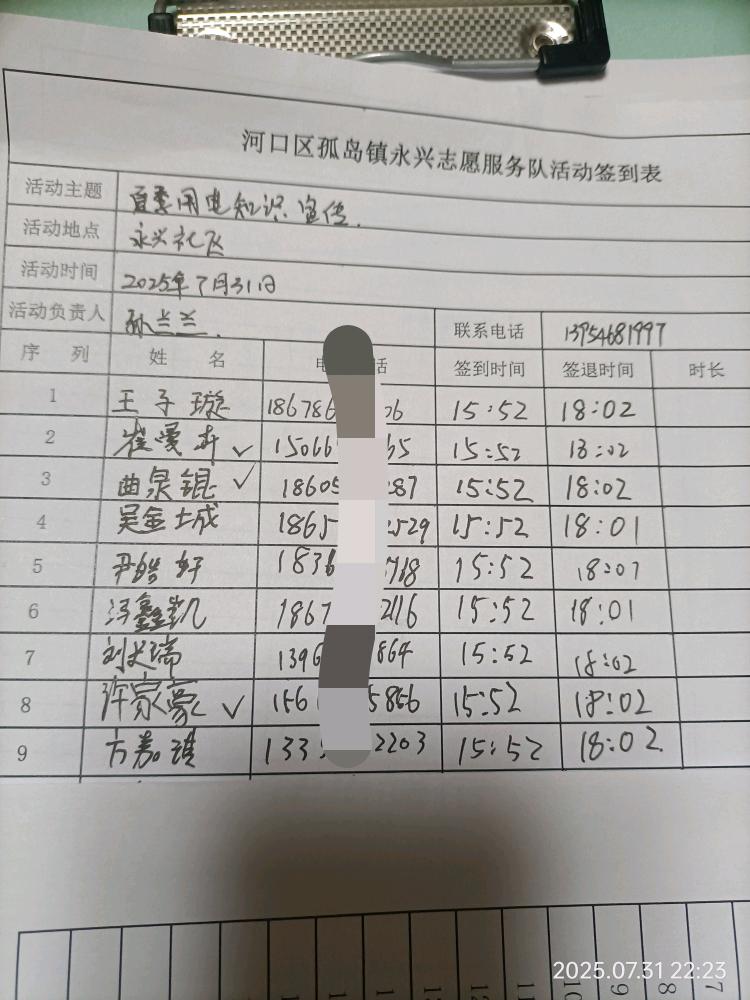 河口区孤岛镇永兴志愿服务队活动签到表
活动主题 夏季用电知识宣传.
活动地点 永兴社区
活动时间 2025年7月31日
活动负责人 孙兰兰. 联系电话 13954681997
序 列 姓 名 电 话 签到时间 签退时间 时长
1 王子璇 186786 06 15:52 18:02
2 崔 轩 ✓ 15066 65 15:52 18:02
3 曲泉锟 ✓ 18605 287 15:52 18:02
4 吴金城 1865 2529 15:52 18:01
5 尹皓轩 1836 718 15:52 18:01
6 冯鑫凯 1867 2116 15:52 18:01
7 刘 瑞 1396 864 15:52 18:02
8 许家豪 ✓ 156 5866 15:52 18:02
9 方嘉琪 133 2203 15:52 18:02
2025.07.31 22:23
7
8
9
10
11
12
13